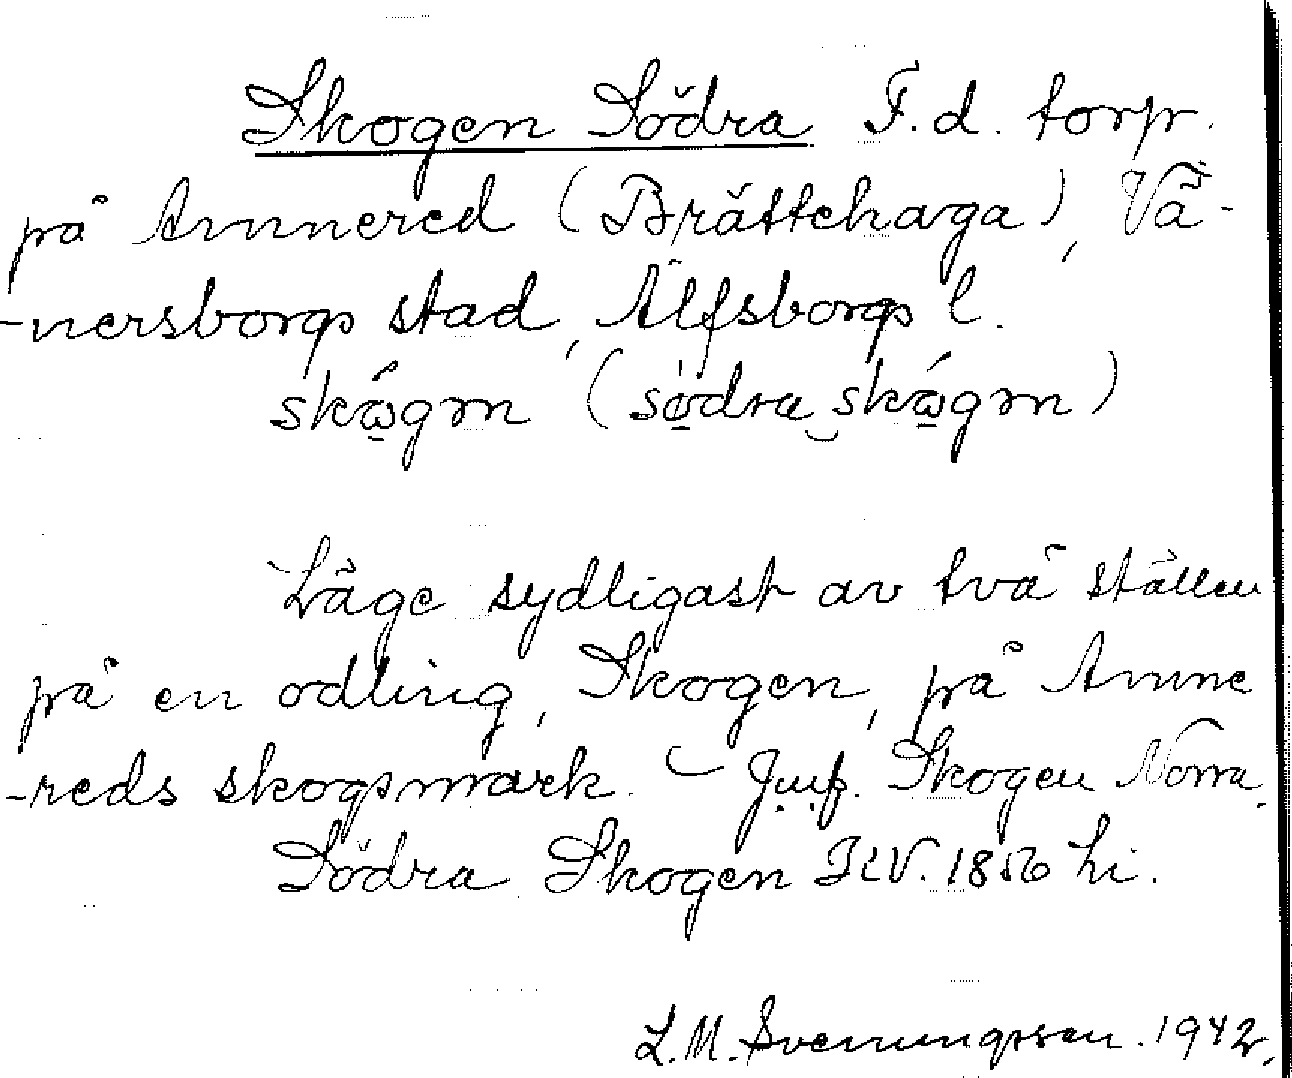 Skogen Södra F.d. torp.
på Annnered (Brättehaga), Vä-
-nersborgs stad, Älfsborgs l.
skǫ́gm (södra skǫ́gm)
Läge sydligast av två ställen
på en odling, Skogen, på Anne
-reds skogsmark. – Jmf. Skogen Norra.
Södra Skogen 1856 Li.
L.M. Svenungsson. 1942.